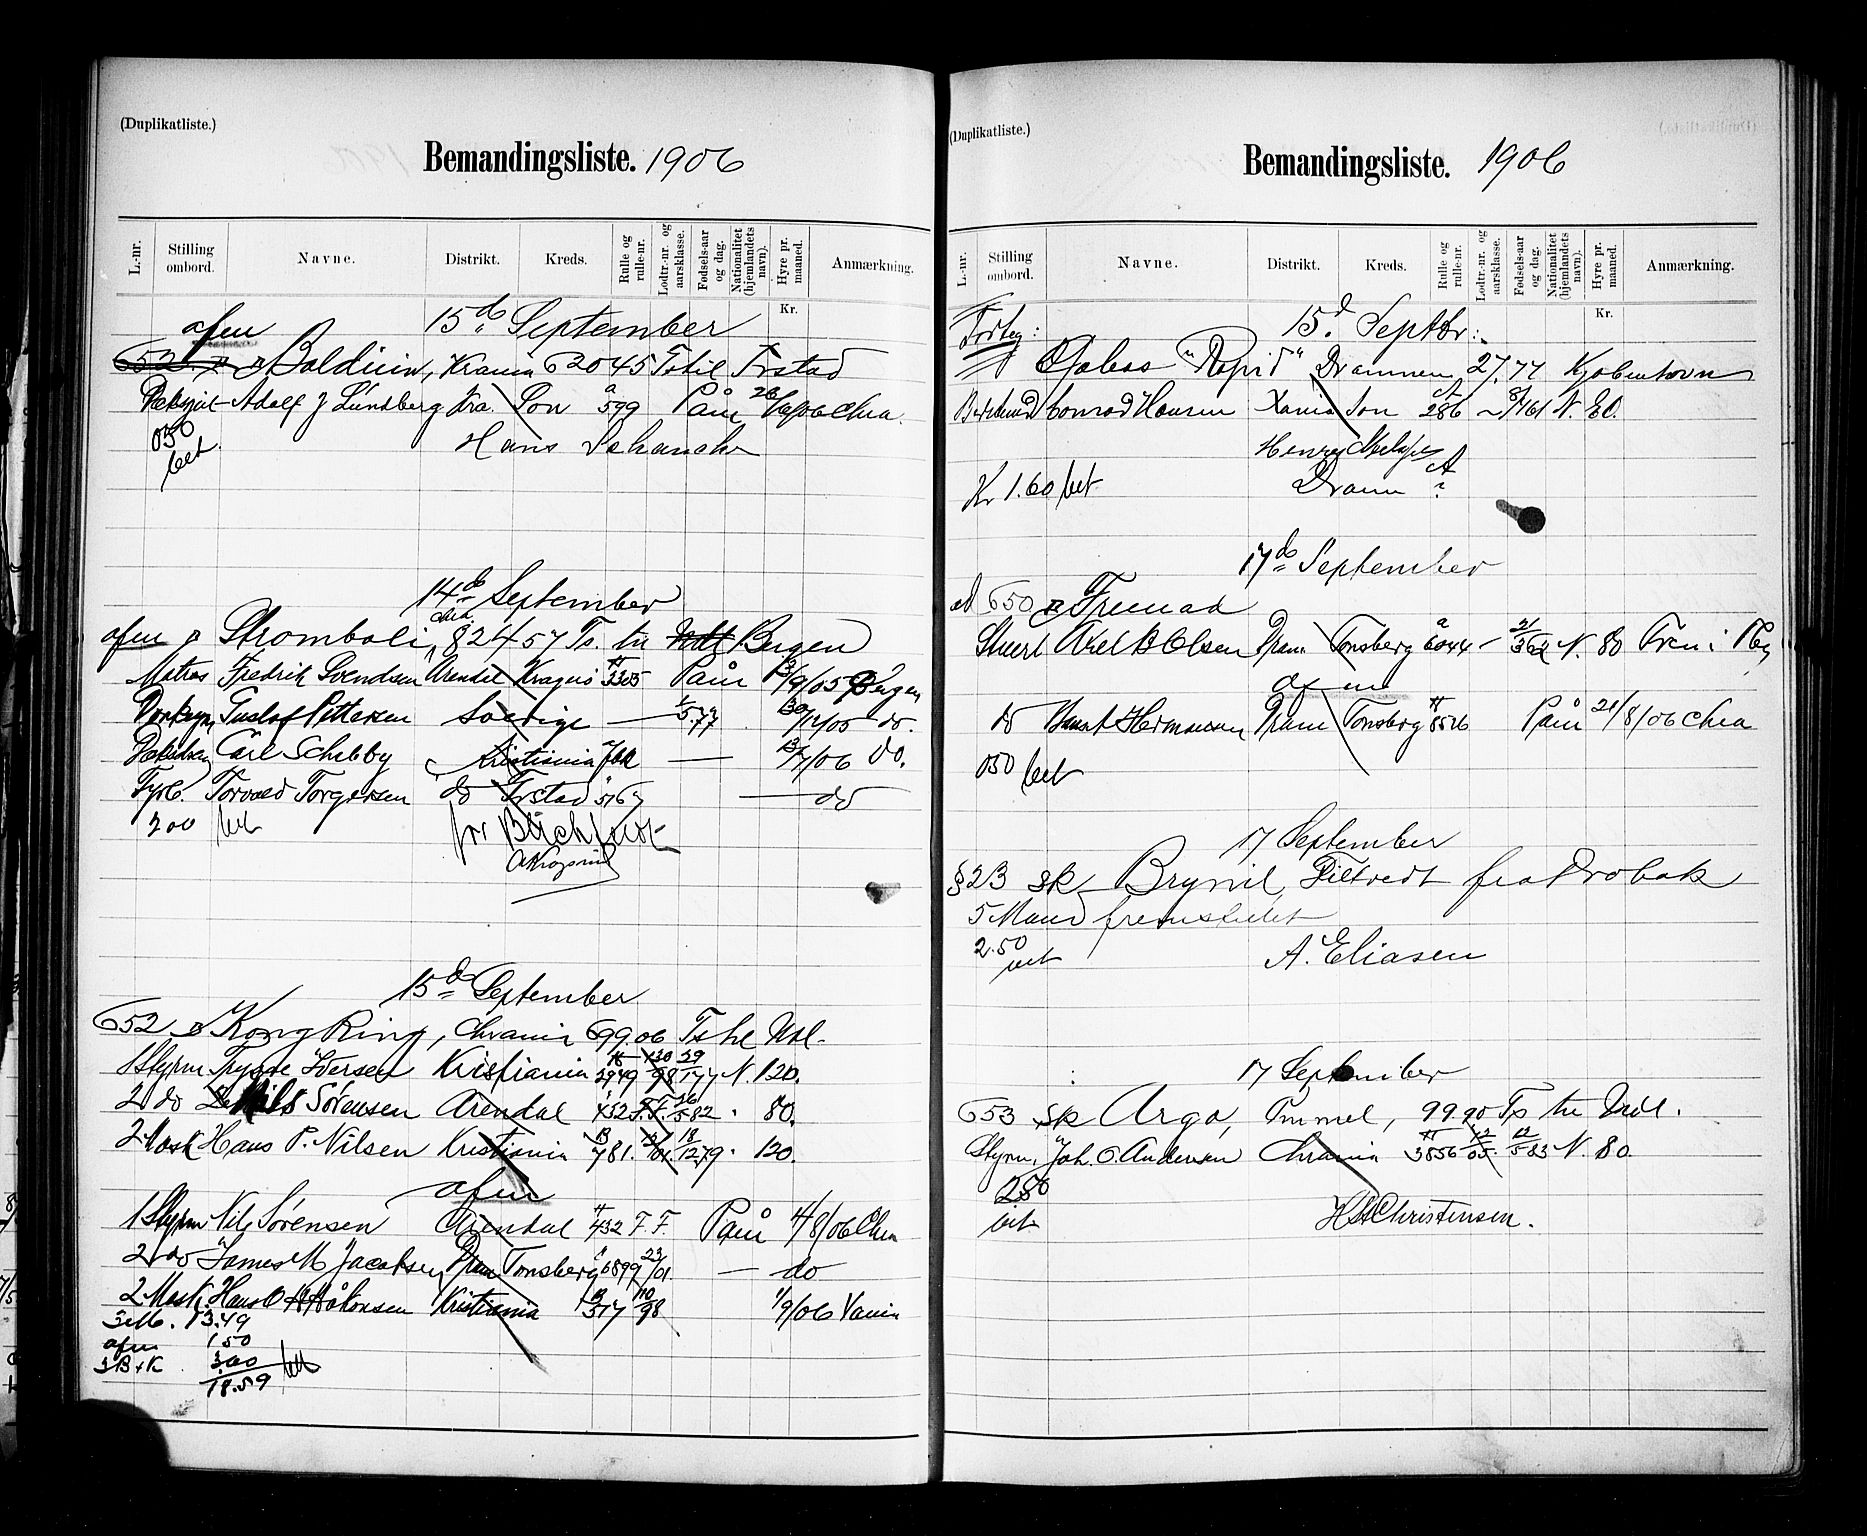 (Duplikatliste.)
Bemandingsliste. 1906
L.-nr.
Stilling ombord.
Navne.
Distrikt.
Kreds.
Rulle og rulle-nr.
Lodtr.-nr. og aarsklasse.
Fødsels-aar og dag.
Nationalitet (hjemlandets navn).
Hyre pr. maaned.
Anmærkning.
Kr.
15 de September
afm
652 Baldwin, Krania 62045 Ts til Frstad
Adolf J Lundberg Kra. Son 599 Påm 06 Chra.
050 Hans Schanche
bet.
14 de September
afm Stromboli, Chra. 82457 Ts. til Bergen
Matros Fredrik Svendsen Arendal Kragerø 3305 Påm /9/05 Bergen
Gustaf Pettersen Sverige — 5.77 30/12/05 do.
Carl Schibby Kristiania — /7/06 do.
Fyrb. Torvald Torgersen do Frstad 5167 — do
200 bet for
15 de September
652 Kong Ring, Chrania 699.06 Ts til Ndl.
1 Styrm Trygve Iversen Kristiania 2949 130/98 29/1 77 N. 120.
2 do Nils Sörensen Arendal 432 F.F. 26/5 82 " 80.
2 Mask Hans P. Nilsen Kristiania 781. /01 18/12 79. " 120.
afm
1 Styrm Nils Sörensen Arendal 432 F.F. Påm 4/8/06 Chra
2 do James M Jacobsen Dram Tonsberg 6899 23/01. — do
2 Mask. Hans O Håkonsen Kristiania 317 110/98 1/9/06 Xania
3 M. 13.49
afm 1 50
3 B + K 3.00 bet
18.59
(Duplikatliste.)
Bemandingsliste. 1906
L.-nr.
Stilling ombord.
Navne.
Distrikt.
Kreds.
Rulle og rulle-nr.
Lodtr.-nr. og aarsklasse.
Fødsels-aar og dag.
Nationalitet (hjemlandets navn).
Hyre pr. maaned.
Anmærkning.
Kr.
15. d Septbr:
Galeas "Rapid" Drammen 27.77 Kjøbenhavn
Bedstmd Conrad Hansen Xania Son 286 – 61 N. 80.
Henry
Kr 1.60 bet Dram ?
17 de September
ad 650 Fremad
Stuert Axel B Olsen Dram Tonsberg 6044 – 21/3 62 N. 80
afm
do Hermansen Dram Tonsberg 8526 Påm 21/8/06 Chra
050 bet
17 September
§23 sk Brynil, Filtvedt fra Drobak
5 Mand fremstillet
2.50 A. Eliasen
bet
17 September
653 sk Argo, 99.90 Ts til Ndl.
Styrm. Joh. O. Andersen Chrania 3856 /05. 12/5 83 N. 80.
250
bet H Christensen.